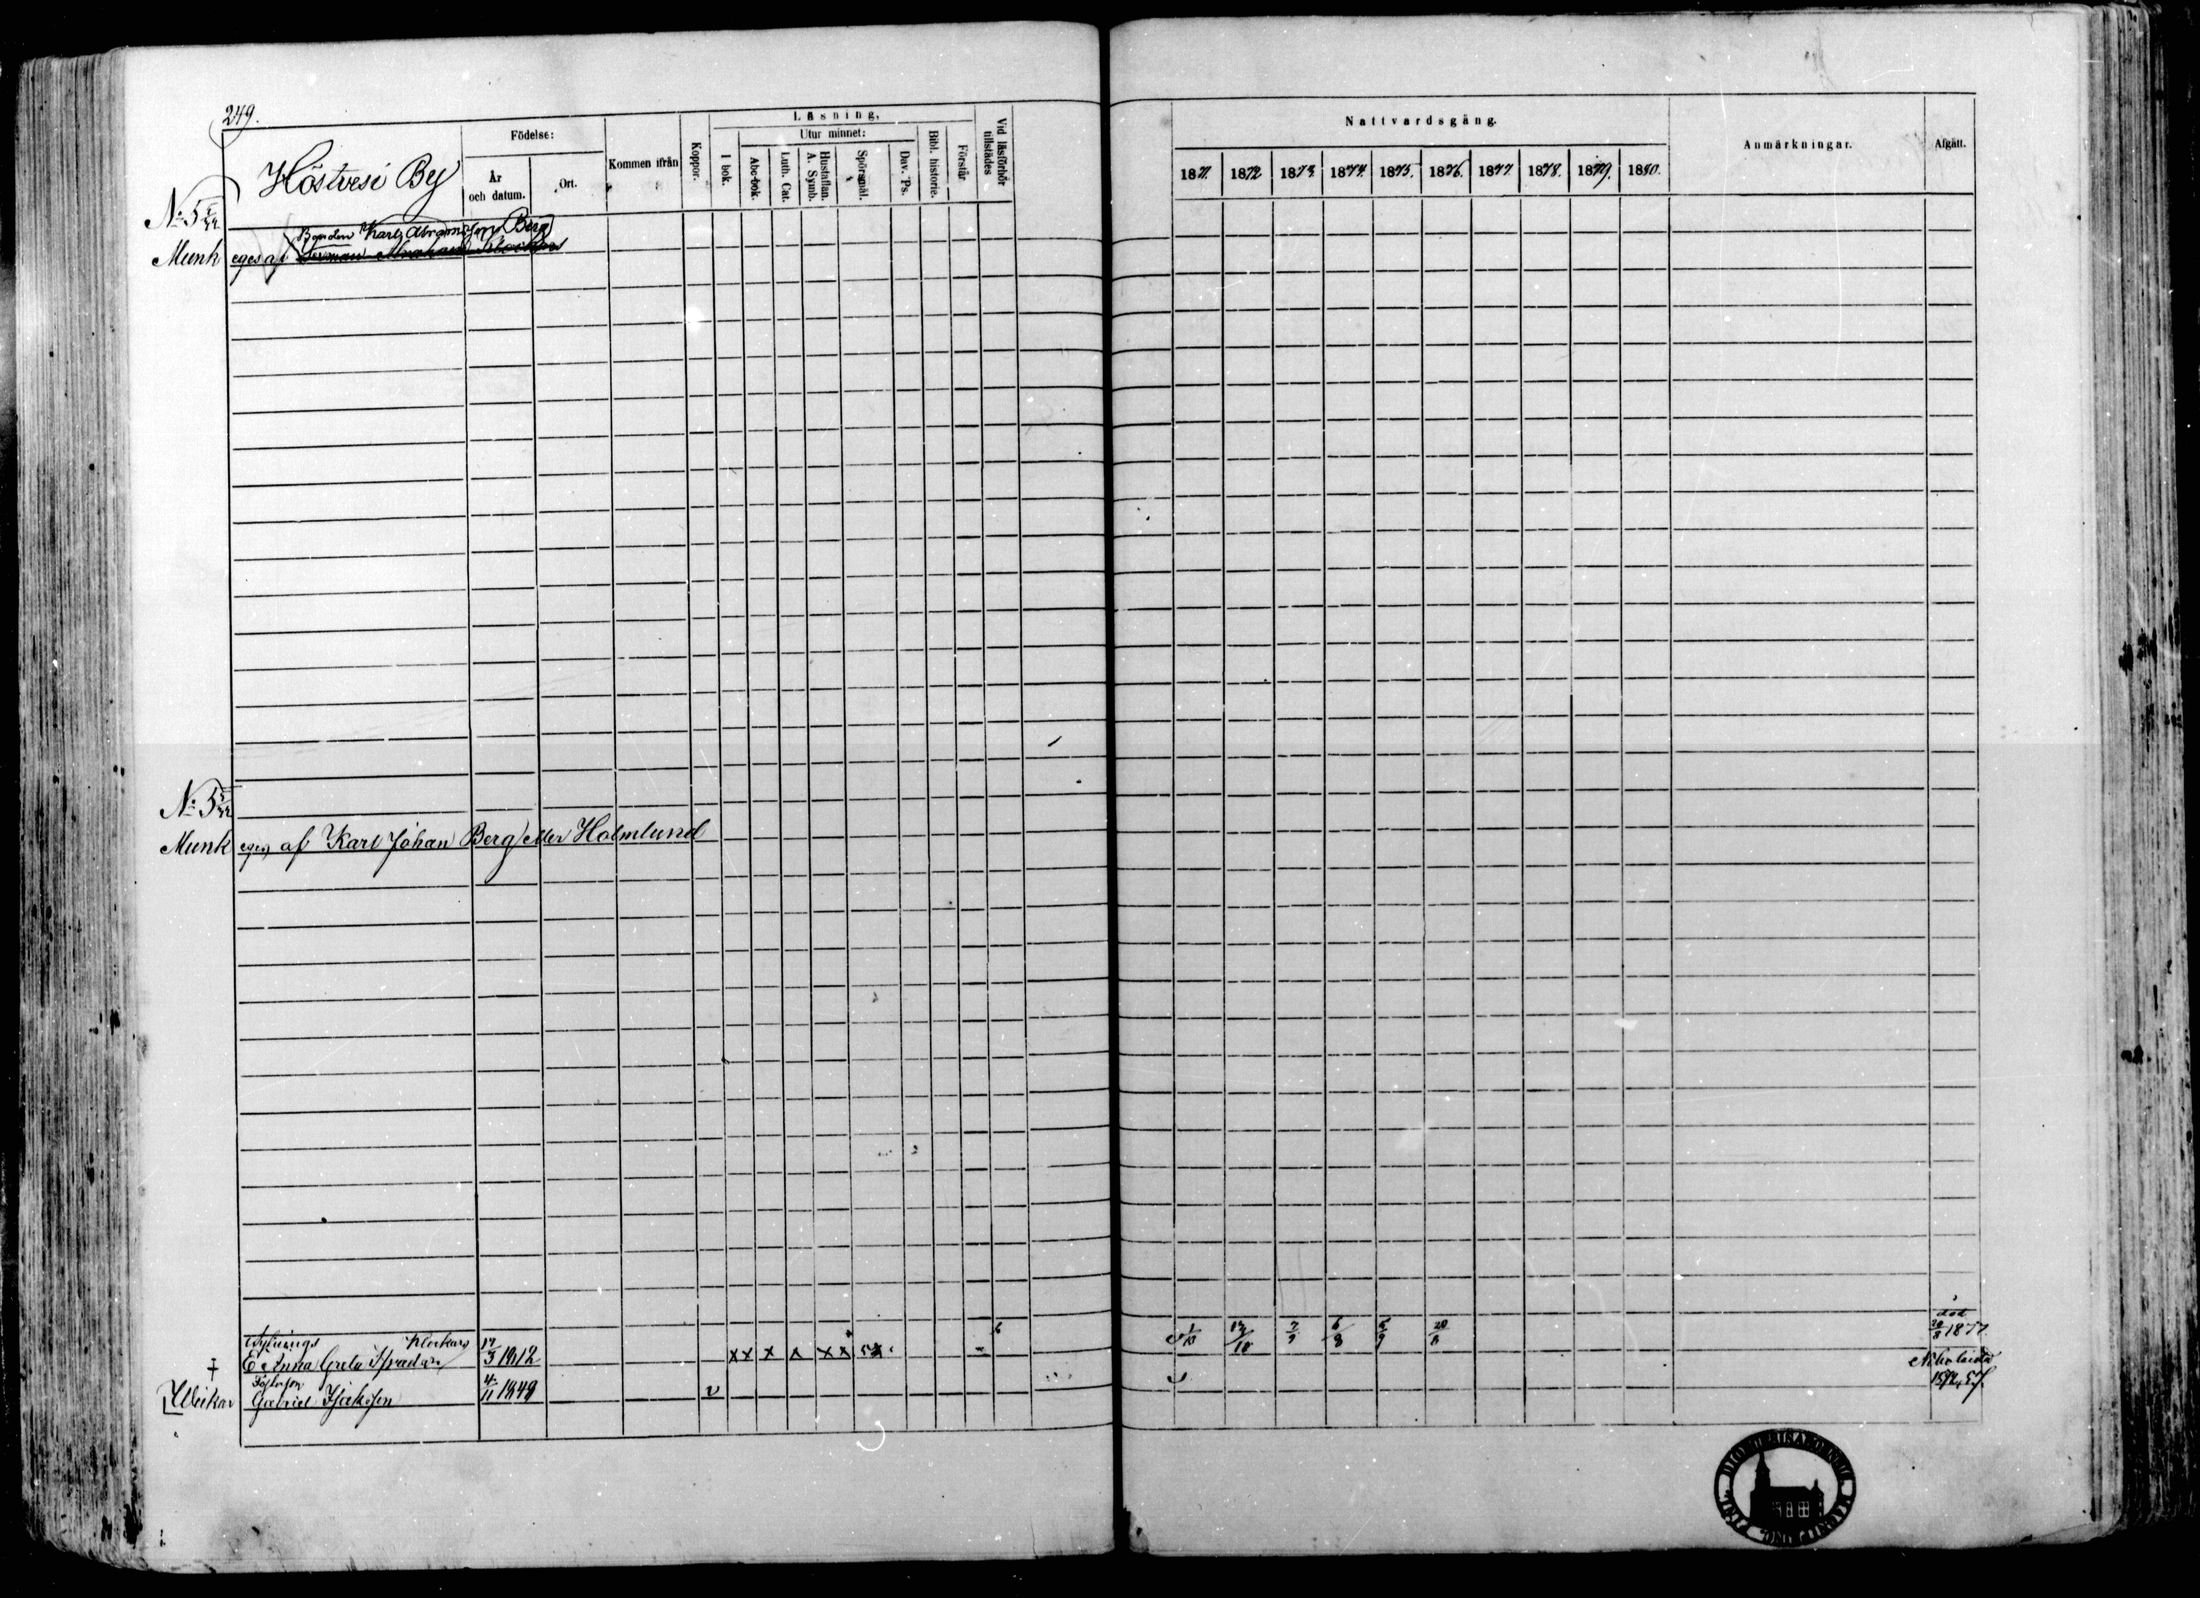 249.
Höstvesi By
Födelse:
År och datum.
Ort.
Kommen ifrån
Koppor.
Läsning,
I bok.
Utur minnet:
Abc-bok.
Luth. Cat.
Hustaflan. A. Symb.
Spörsmål.
Dav. Ps.
Bibl. historie.
Förstår
Vid läsförhör tillstädes
Nattvardsgång.
1871. 1872 1873. 1874. 1875. 1876. 1877 1878. 1879. 1880.
Anmärkningar.
Afgått.
No 5
Bonden Karl Abramsson Berg
Munk eges af
No 5
Munk eges af Karl Johan Berg eller Holmlund
Sytnings Klockars
E Anna Greta 17/3 1812 xx x x xx 1/10 7/9 6/8 20/8 död 20/8 1877
Weikar Gabriel 4/11 1849 v Nikolaistad